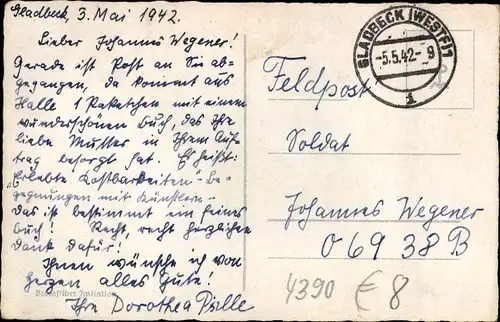 Gladbeck, 3. Mai 1942.
Lieber Johannes Wegener!
Gerade ist Post an Sie ab-
gegangen, da kommt aus
Halle 1 Paketchen mit einem
wunderschönen Buch, das Ihre
liebe Mutter in Ihrem Auf-
trag besorgt hat. Es heißt:
"Erlebte Kostbarkeiten" - Be-
gegnungen mit Künstlern -
Das ist bestimmt ein feines
Buch! Recht, recht herzlichen
Dank dafür!
Ihnen wünsche ich von
Herzen alles Gute!
Ihre Dorothea
GLADBECK (WESTF) 1
-5.5.42-9
Feldpost
Soldat
Johannes Wegener
06938B
4390 € 8